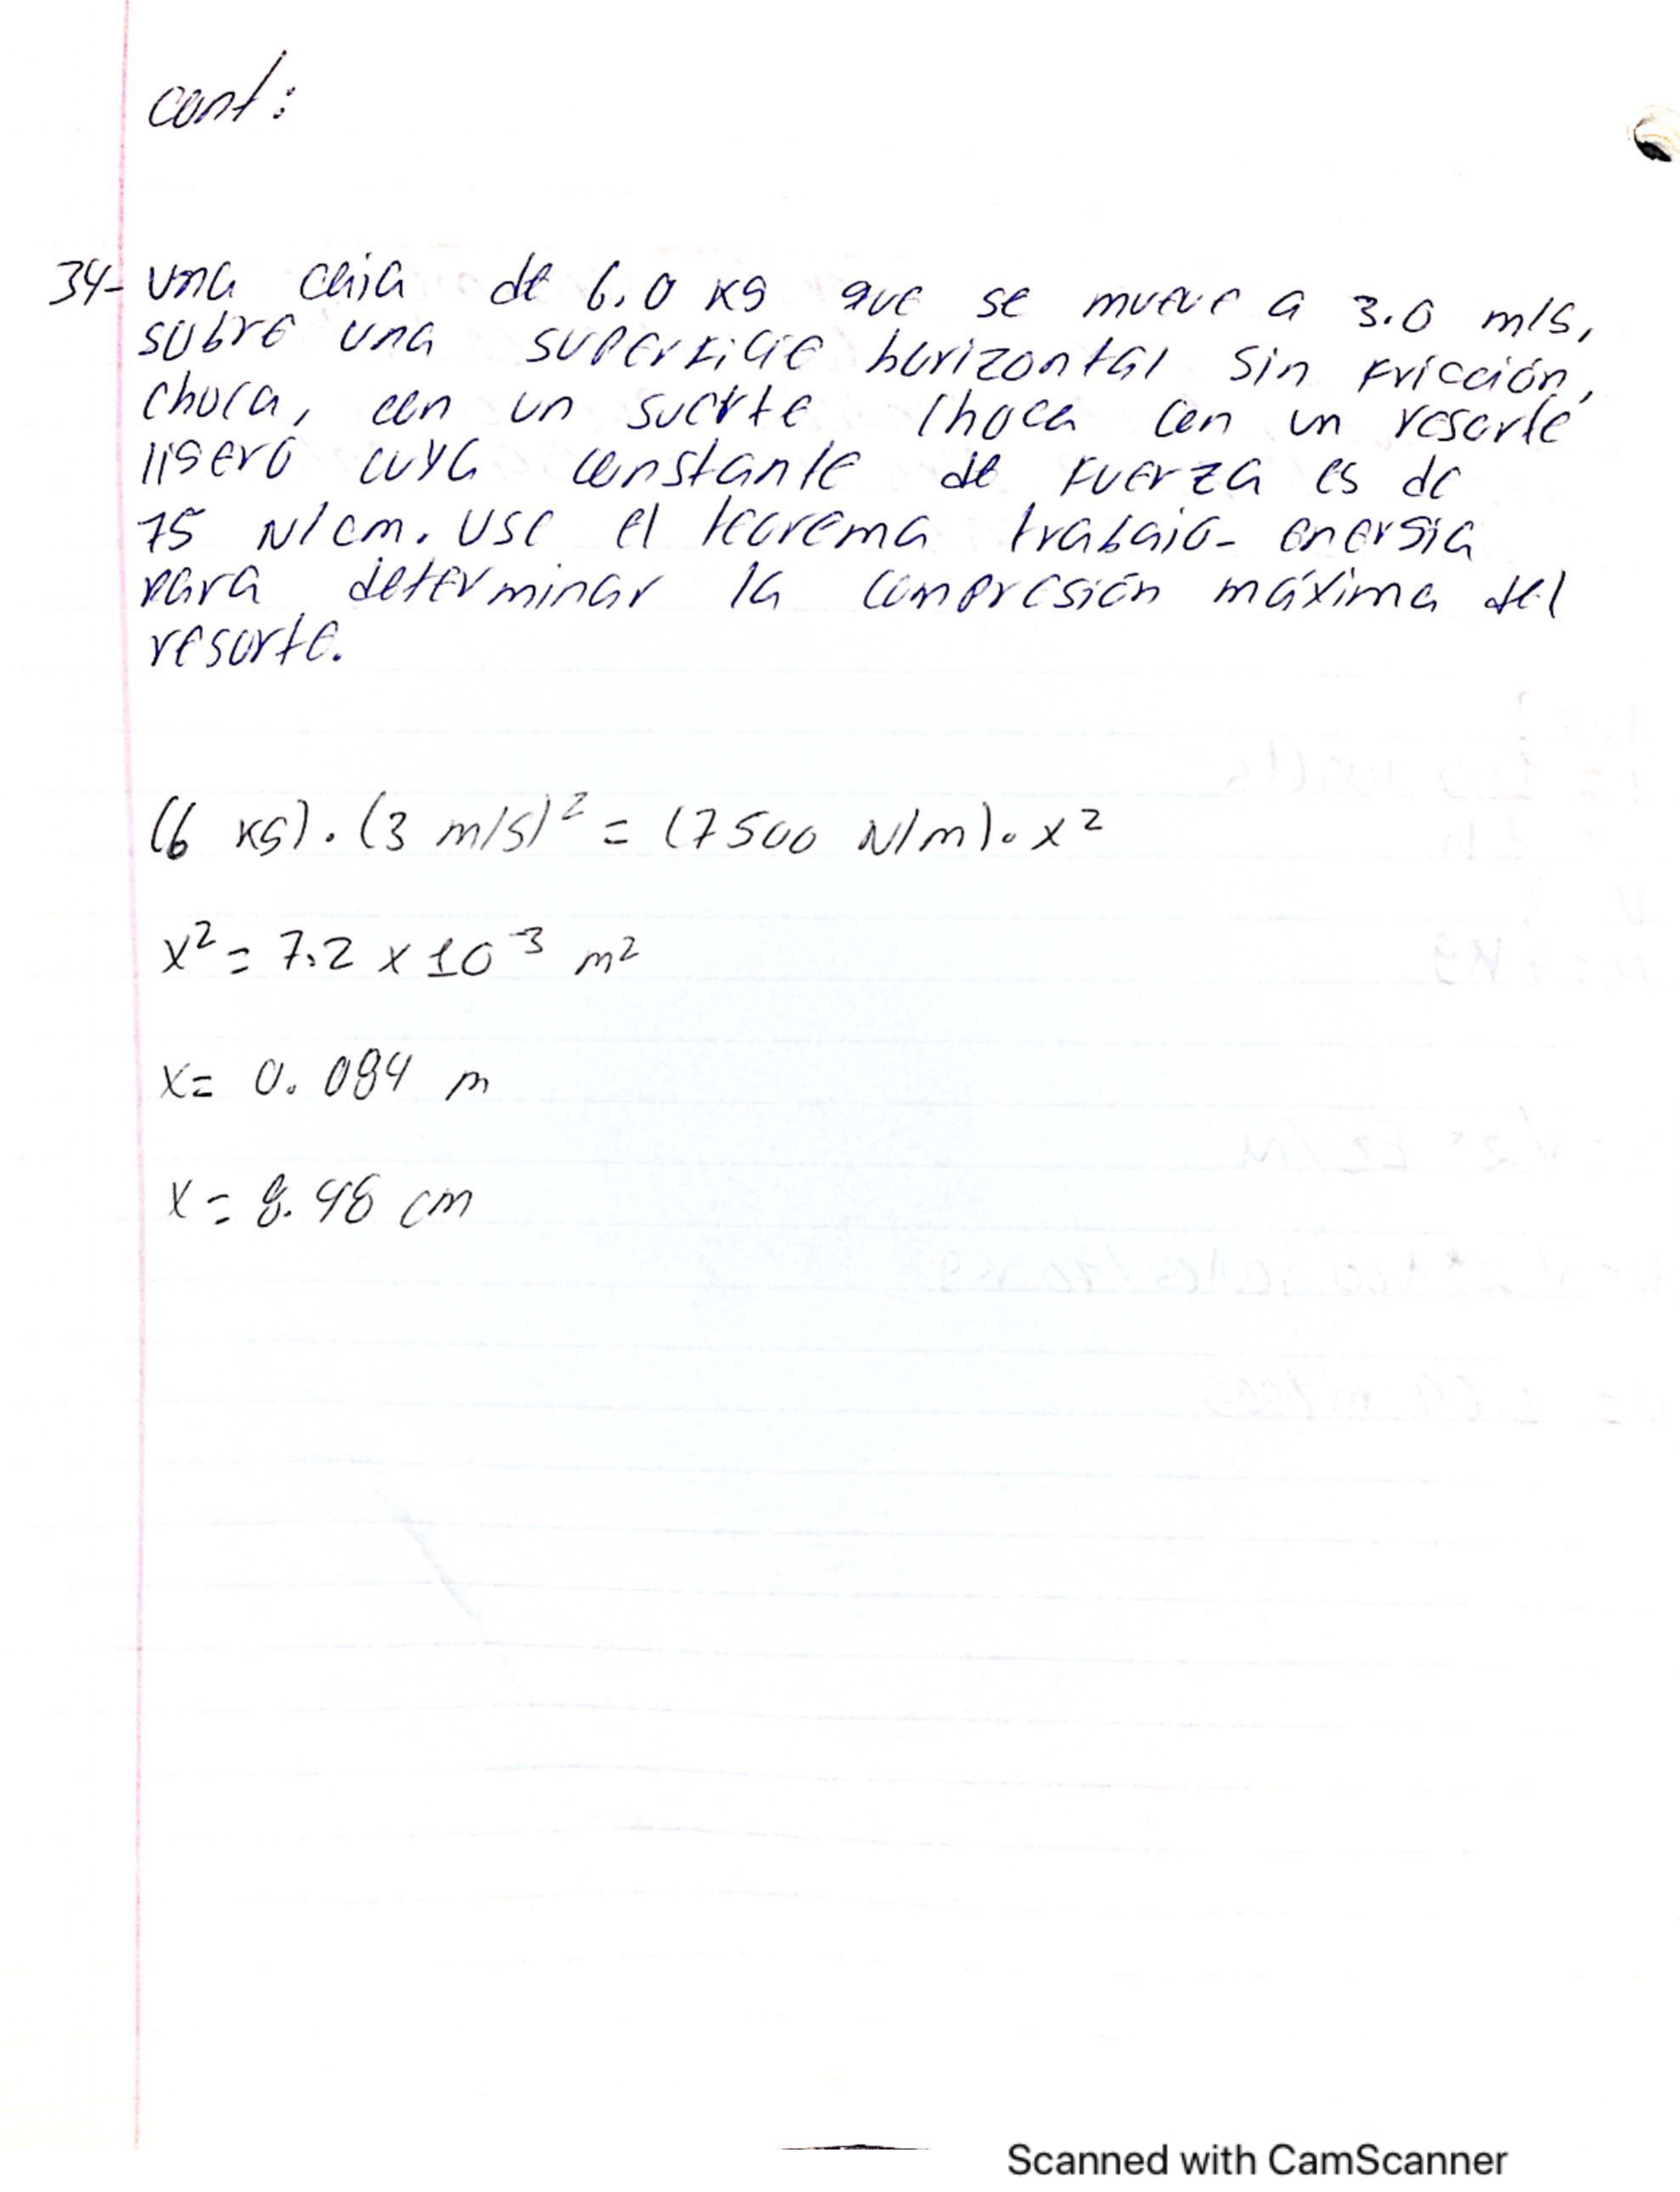 cont:
34- una caja de 6.0 kg que se mueve a 3.0 m/s,
sobre una superficie horizontal sin fricción,
choca, con un suerte choca con un resorte
ligero cuya constante de fuerza es de
75 N/cm. Use el teorema trabajo- energia
para determinar la compresión máxima del
resorte.
(6 kg) · (3 m/s)² = (7500 N/m) · x²
x² = 7.2 x 10⁻³ m²
x = 0.084 m
x = 8.48 cm
Scanned with CamScanner